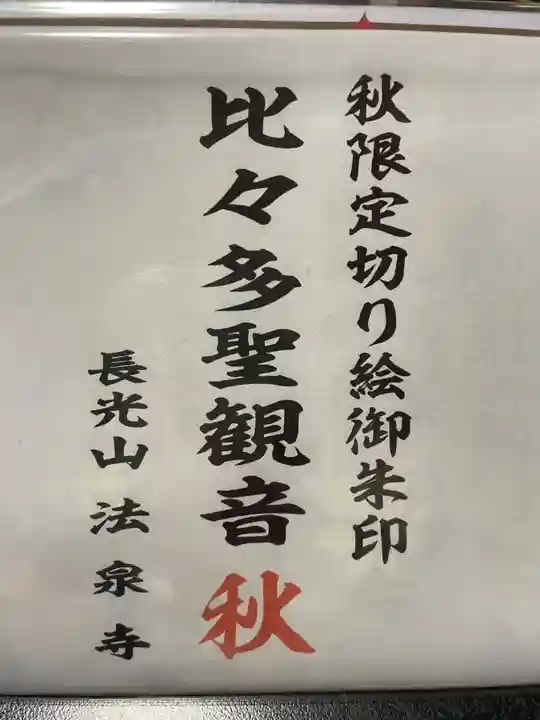 秋限定切り絵御朱印
比々多聖観音秋
長光山 法泉寺